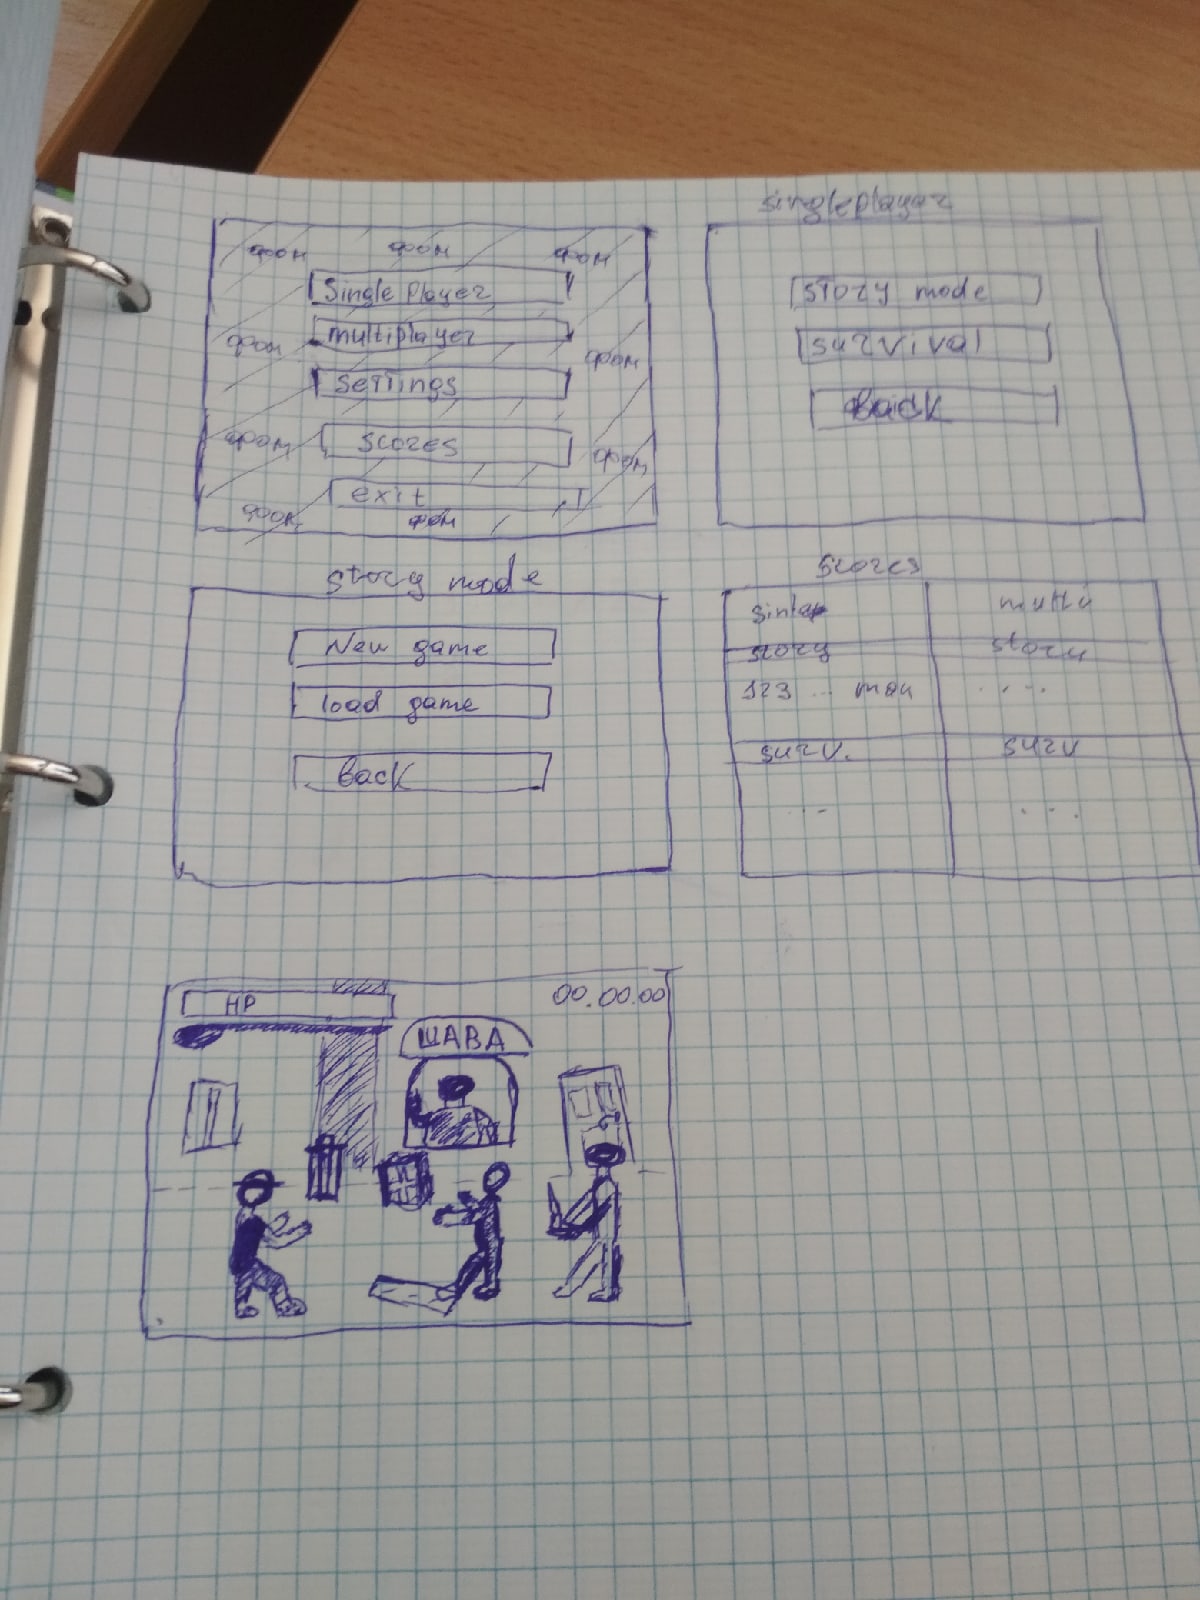 фон фон фон
Single Player
multiplayer
фон
фон
settings
фон
scores
фон
exit
фон
фон
singleplayer
story mode
survival
back
story mode
New game
load game
back
scores
multi
story story
123 ...
surv. surv
...
...
HP
00.00.00
ШАВА